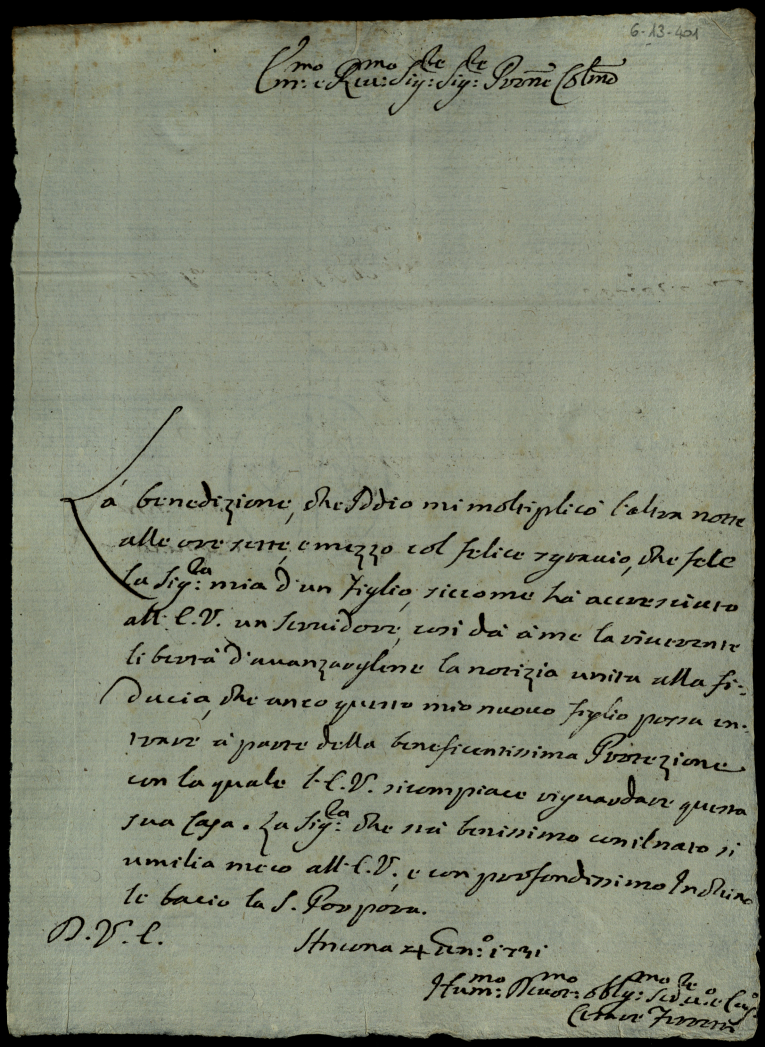 6-13-401
Em:mo e Reu:mo Sig:re Sig:re Prõne Colmo
La benedizione, che Iddio mi moltiplicò l'altra notte
alle ore sette, e mezzo col felice sgrauio, che fece
la Sig:ra mia d'un Figlio, siccome hà accresciuto
all'E.V. un Seruidore, così dà à me la riuerente
libertà d'auanzargliene la notizia unita alla fi-
ducia, che anco questo mio nuouo figlio possa en-
trare à parte della beneficentissima Protezione
con la quale l'E.V. si compiace riguardare questa
sua Casa. La Sig:ra che stà benissimo con il nato si
umilia meco all'E.V., e con profondissimo Inchino
le bacio la S. Porpora.
D.V.E.
Ancona 24 Gen:o 1731
Hum:mo Deuot:mo obl:mo Ser:re
Cesare